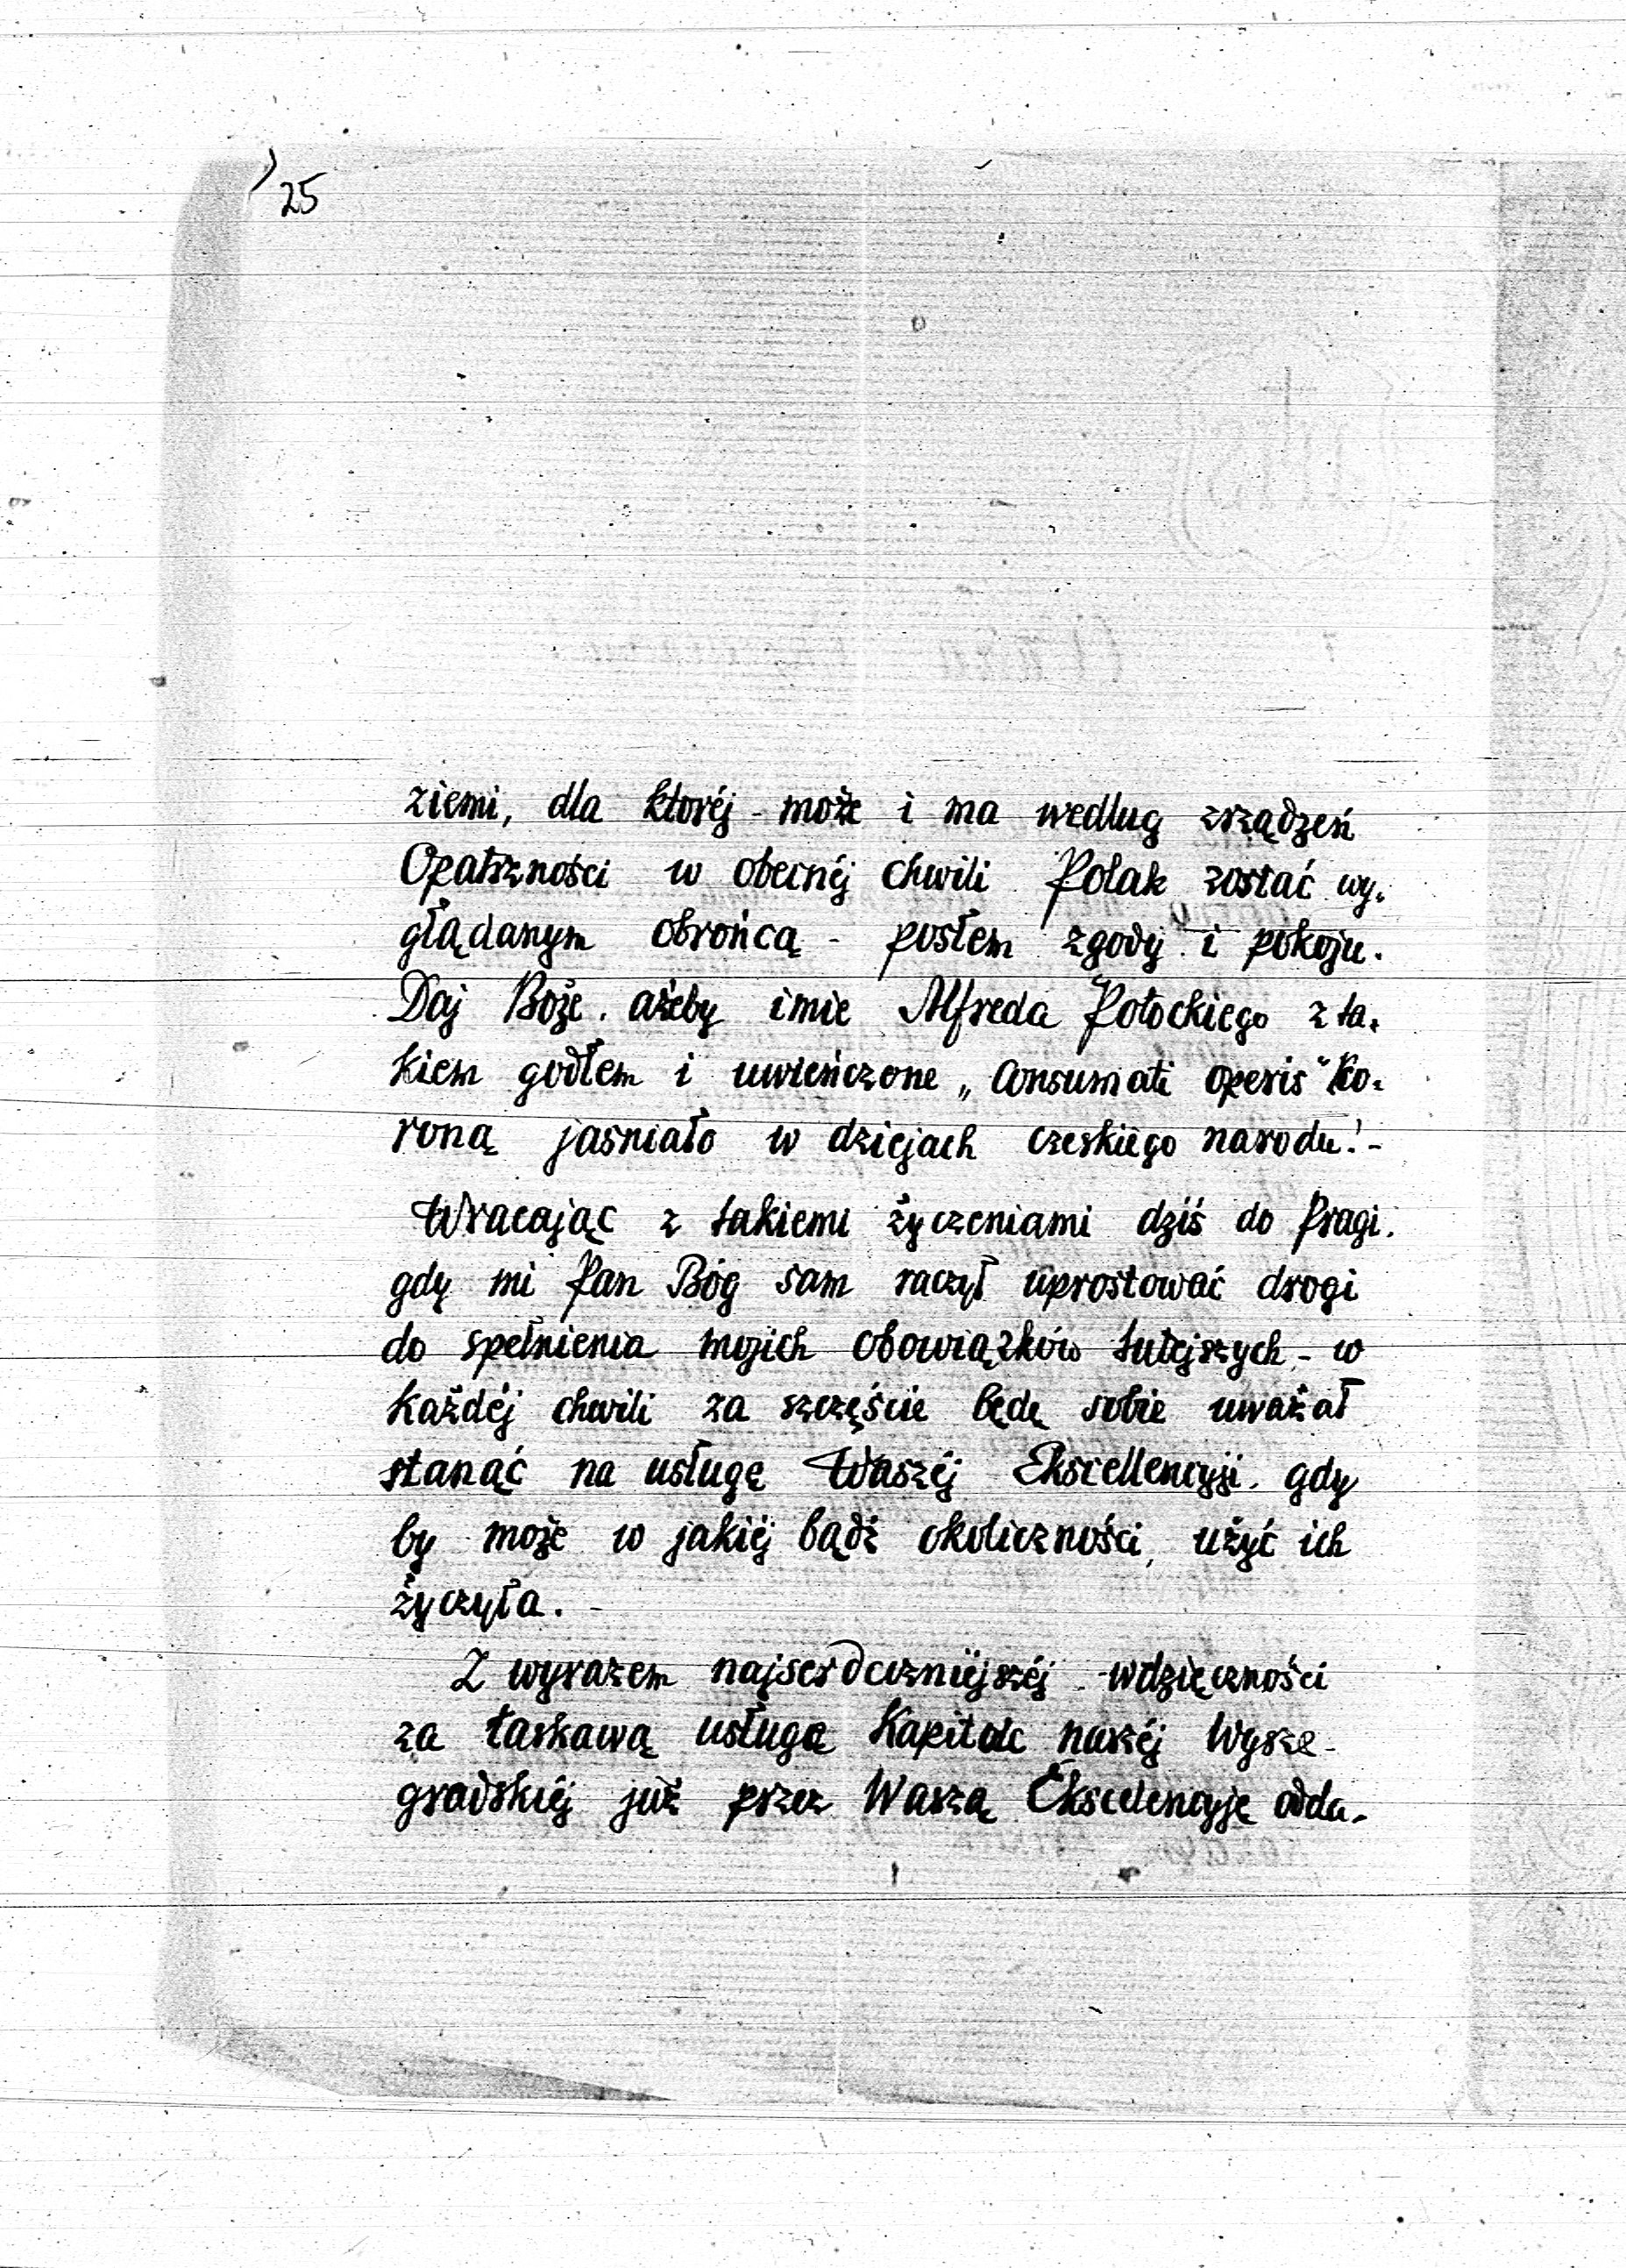 25
ziemi, dla ktoréj - może i ma wedlug zrządzeń
Opatrzności w obecnéj chwili Polak zostać wy-
głądanym obrońcą - posłem zgody i pokoju.
Daj Boże, ażeby imie Alfreda Potockiego z ta-
kiem godłem i uwieńczone „Consumati operis" ko-
roną jaśniało w dziejach czeskiego narodu! -
Wracając z takiemi życzeniami dziś do Pragi,
gdy mi Pan Bóg sam raczył uprostować drogi
do spełnienia mojich obowiązków tutejszych - w
każdéj chwili za szczęście będę sobie uważał
stanąć na usługę Waszéj Ekscellencyji, gdy
by może w jakiéj bądź okoliczności, użyć ich
życzyła. -
Z wyrazem najserdeczniéjszéj wdzięczności
za łaskawą usługę Kapitole naszéj Wysze-
gradskiéj już przez Waszą Ekscelencyję odda-